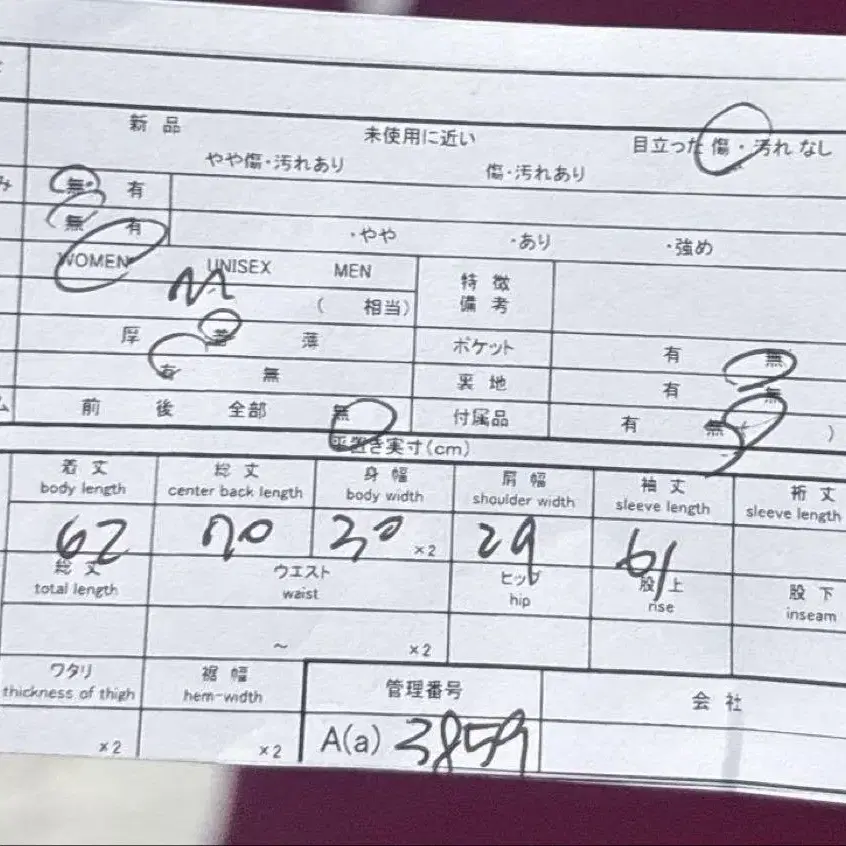 新品 未使用に近い 目立った 傷・汚れ なし
やや傷・汚れあり 傷・汚れあり
み 無・ 有
無 有 ・やや ・あり ・強め
WOMEN UNISEX MEN 特徴
M ( 相当) 備考
厚 普 薄 ポケット 有 無
有 無 裏地 有 無
ム 前 後 全部 無 付属品 有 無 ( )
平置き実寸(cm)
着丈 総丈 身幅 肩幅 袖丈 裄丈
body length center back length body width shoulder width sleeve length sleeve length
62 70 30 ×2 29 61
総丈 ウエスト ヒップ 股上 股下
total length waist hip rise inseam
~ ×2
ワタリ 裾幅 管理番号 会社
thickness of thigh hem-width
×2 ×2 A(a) 3859